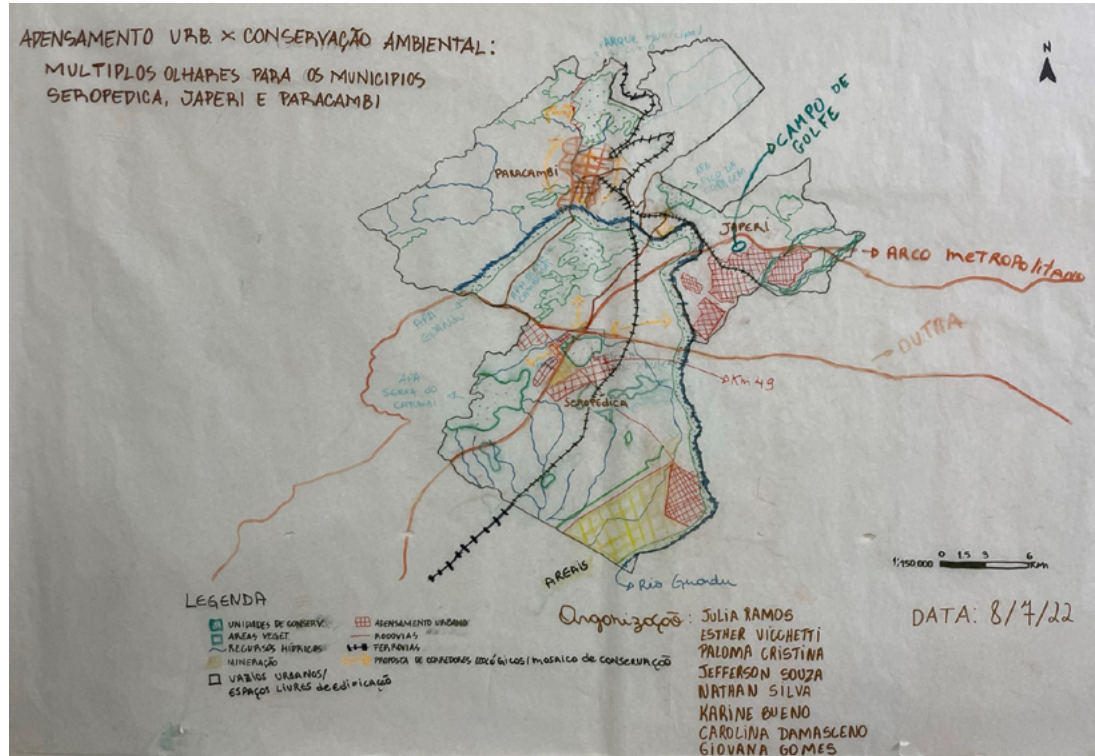 ADENSAMENTO URB. × CONSERVAÇÃO AMBIENTAL:
MULTIPLOS OLHARES PARA OS MUNICIPIOS
SEROPEDICA, JAPERI E PARACAMBI
PARQUE MUNICIPAL
N
CAMPO DE
GOLFE
PARACAMBI
APA
JAPERI
ARCO METROPOLITANO
APA
GUANDU
DUTRA
APA
SERRA DO
Km 49
SEROPEDICA
AREAIS
Rio Guandu
1:150.000
0 1.5 3 6
Km
LEGENDA
UNIDADES DE CONSERV.
AREAS VEGET.
RECURSOS HÍDRICOS
MINERAÇÃO
VAZIOS URBANOS/
ESPAÇOS LIVRES de EDIFICAÇÃO
ADENSAMENTO URBANO
RODOVIAS
FERROVIAS
PROPOSTA DE CORREDORES ECOLÓGICOS/MOSAICO DE CONSERVAÇÃO
Organização: JULIA RAMOS
ESTHER VICCHETTI
PALOMA CRISTINA
JEFFERSON SOUZA
NATHAN SILVA
KARINE BUENO
CAROLINA DAMASCENO
GIOVANA GOMES
DATA: 8/7/22